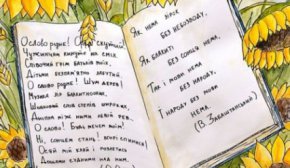 О слово рідне! Орле скутий!
Чужинцям кинуте на сміх!
Співочий грім батьків моїх,
Дітьми безпам'ятно забутий.
О слово рідне! Шум дерев!
Музика зір блакитнооких,
Шовковий спів степів широких,
Дніпра між ними левій рев...
О слово! Будь мечем моїм!
Ні, сонцем стань! вгорі спинися!
Осяй мій край і розлетися
Дощами судними над ним.
Як нема зірок
без небозводу,
Як блакиті
без сонця нема,
Так і мови нема
без народу,
І народу без мови
нема.
(В. Забаштанський)